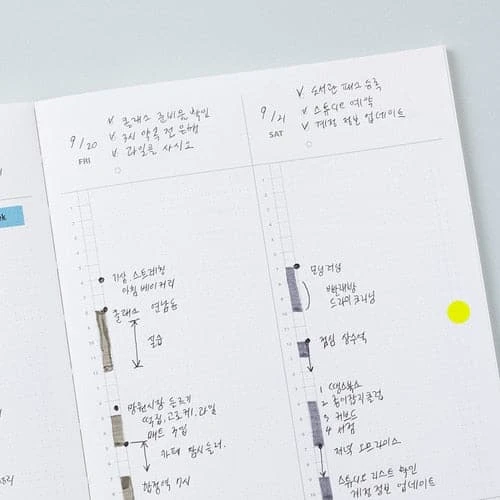 9/20
FRI
v 클래스 준비물 확인
v 3시 약속 전 은행
v 과일클 사시오
9/21
SAT
v 도서관 패스 등록
v 스튜디오 예약
v 계정 정보 업데이트
기상, 스트레칭
아침 베이커리
클래스 연남동
실습
망원시장 들르기
떡집, 고로케, 과일
매트 구입
카페 잠시 들러.
합정역 7시
모닝커피
빨래방
드라이크리닝
점심 상수역
1
2 종이잡지클럽
3 키보드
4 서점
저녁 오프라이스
스튜디오 리스트 확인
계정 정보 업데이트